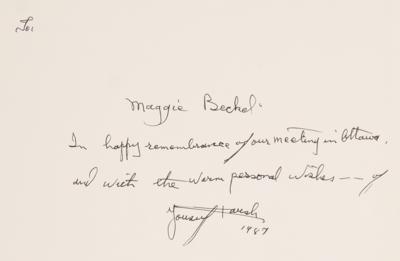 To:
Maggie Bechel.
In happy remembrance of our meeting in Ottawa,
and with the warm personal wishes -- of
Yousuf Karsh
1987